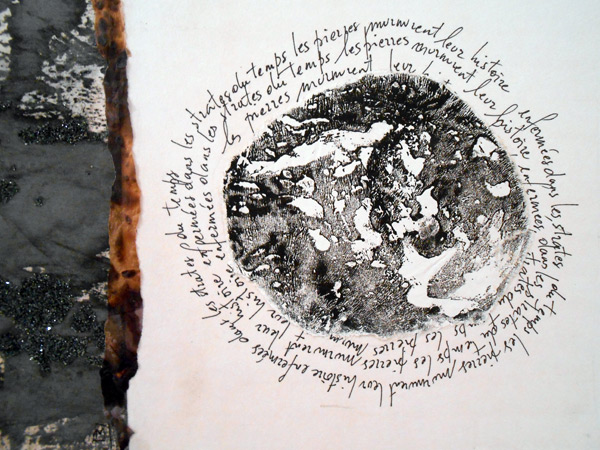 les pierres murmurent leur histoire enfermées dans les strates du temps les pierres murmurent leur histoire enfermées dans les strates du temps
enfermées dans les strates du temps les pierres murmurent leur histoire enfermées, dans les strates du temps les pierres murmurent leur histoire
les pierres murmurent leur
strates du temps les pierres murmurent leur histoire